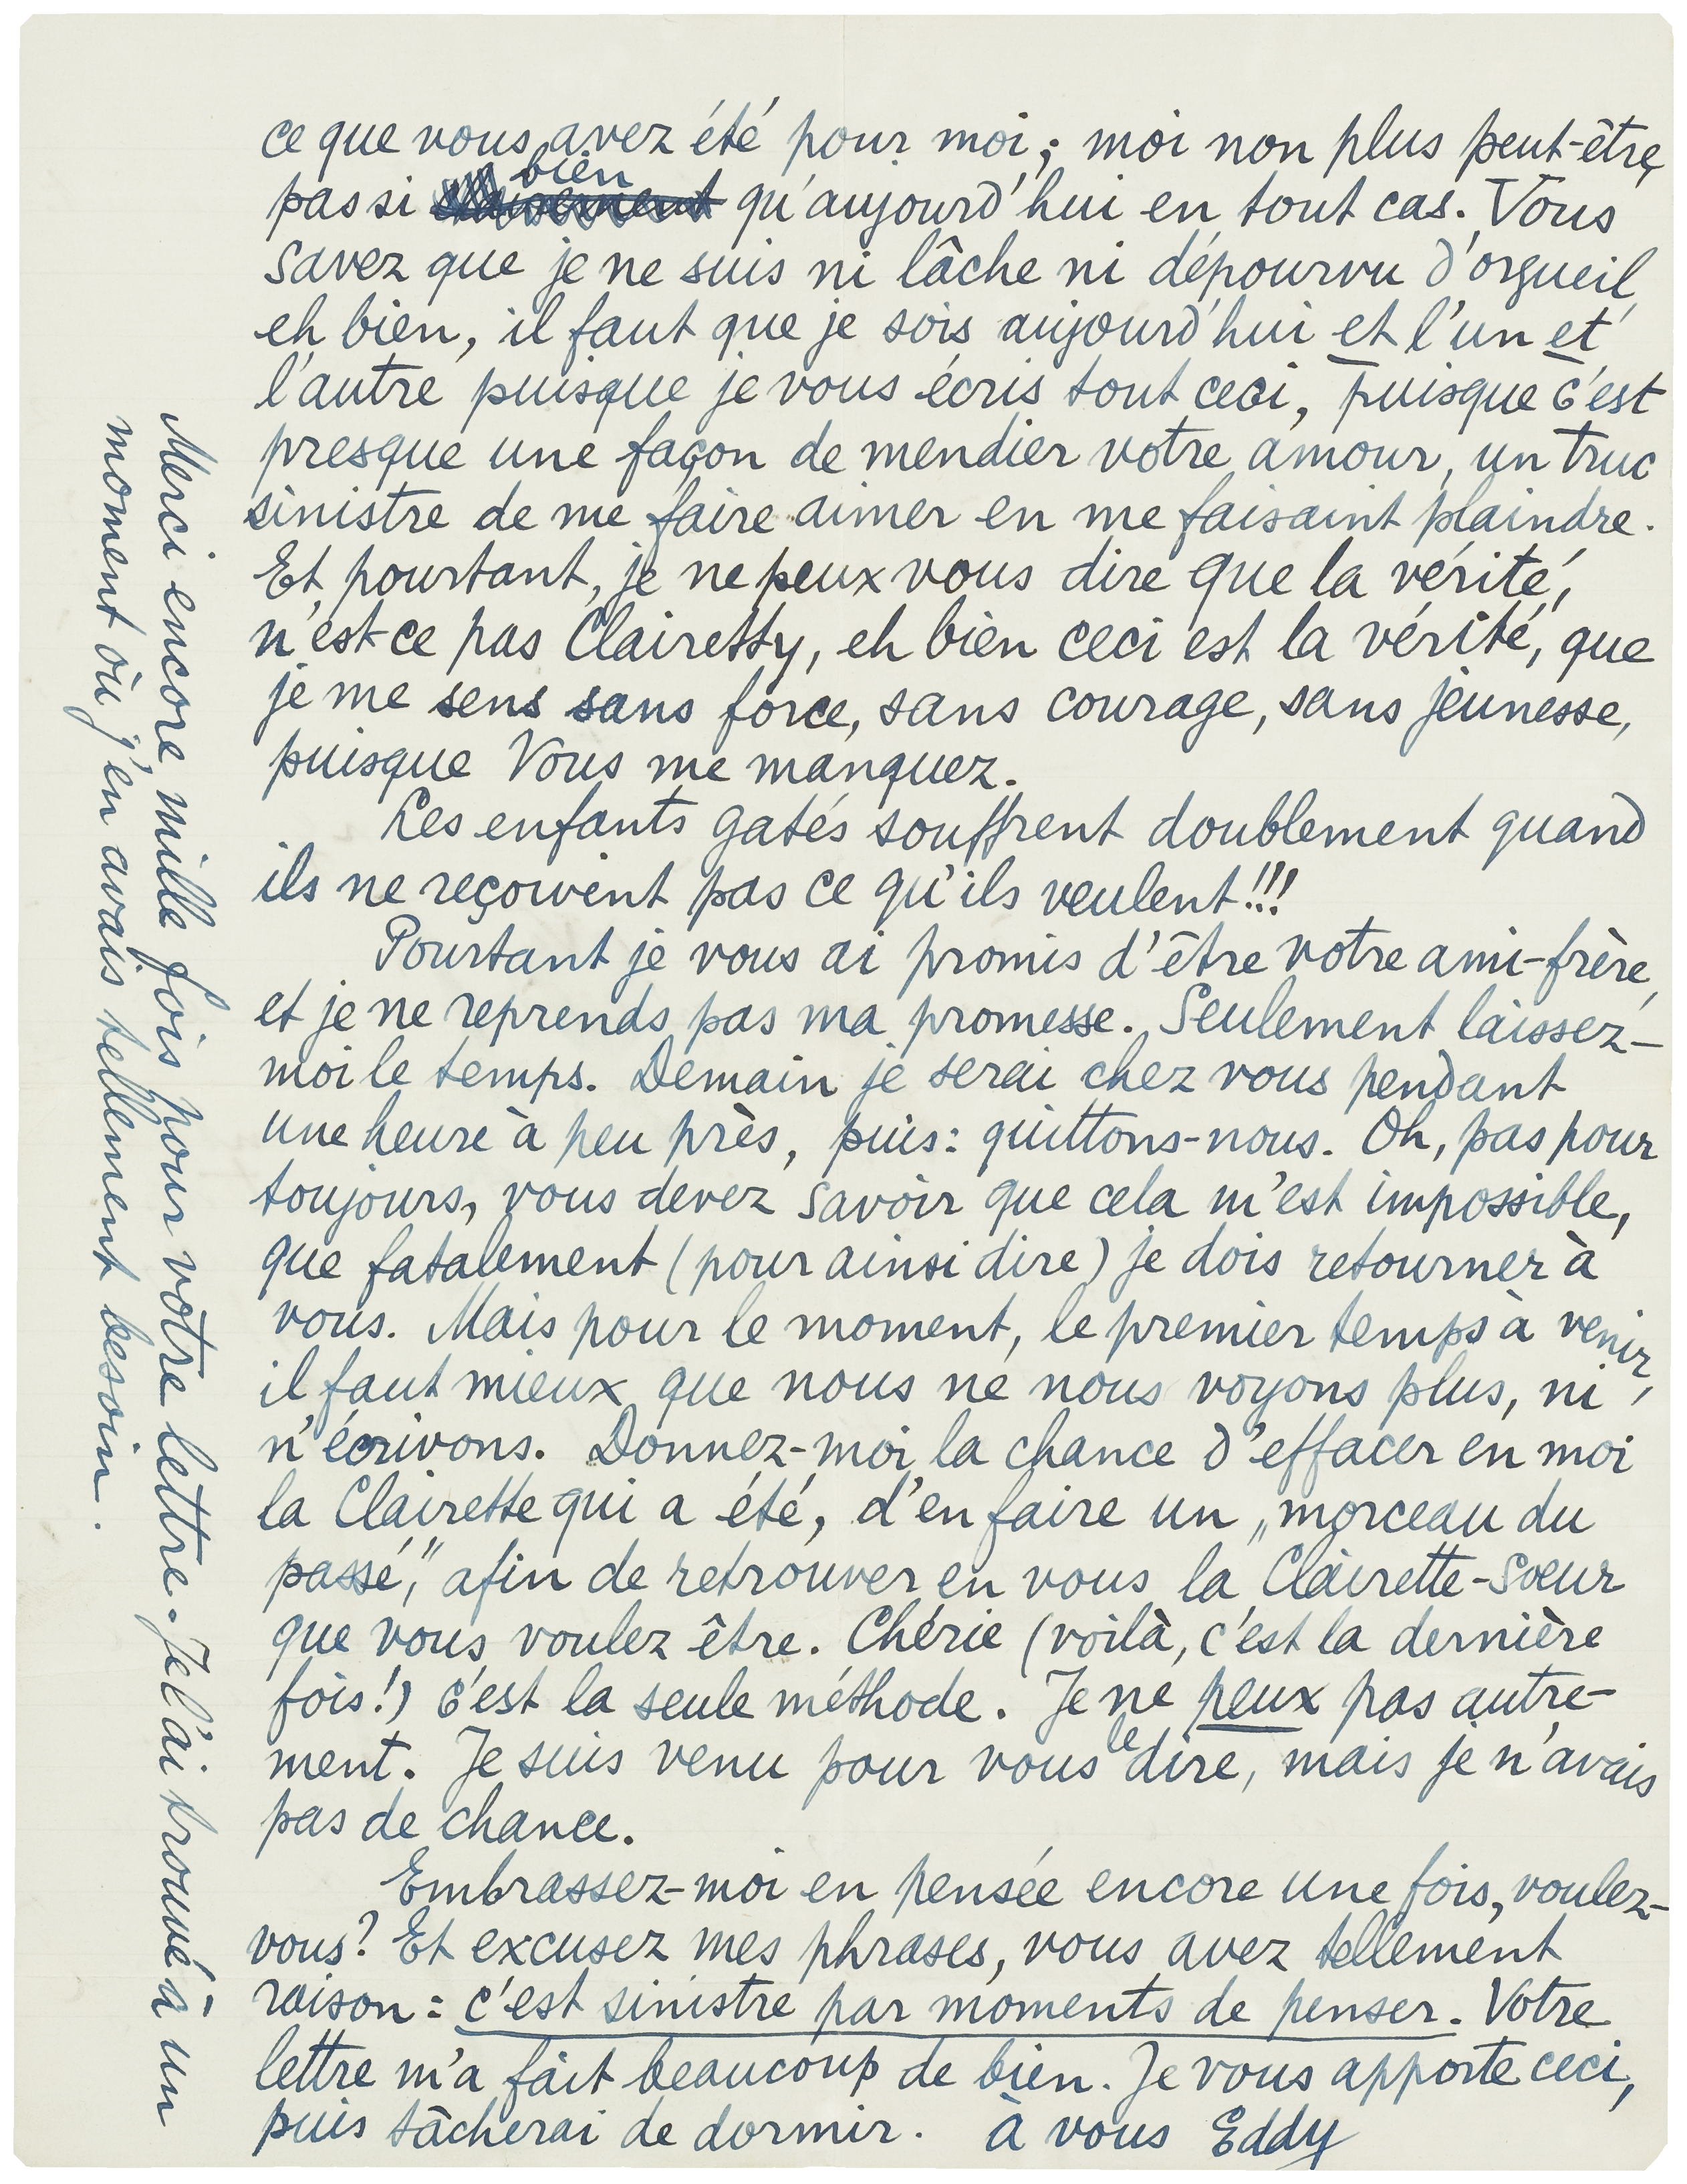 ce que vous avez été pour moi; moi non plus peut-être,
pas si bien qu'aujourd'hui en tout cas. Vous
savez que je ne suis ni lâche ni dépourvu d'orgueil,
eh bien, il faut que je sois aujourd'hui et l'un et
l'autre puisque je vous écris tout ceci, puisque c'est
presque une façon de mendier votre amour, un truc
sinistre de me faire aimer en me faisaint plaindre.
Et pourtant, je ne peux vous dire que la vérité,
n'est-ce pas Clairetty, eh bien ceci est la vérité, que
je me sens sans force, sans courage, sans jeunesse,
puisque Vous me manquez.
Les enfants gatés souffrent doublement quand
ils ne reçoivent pas ce qu'ils veulent!!!
Pourtant je vous ai promis d'être votre ami-frère,
et je ne reprends pas ma promesse. Seulement laissez-
moi le temps. Demain je serai chez vous pendant
une heure à peu près, puis: quittons-nous. Oh, pas pour
toujours, vous devez savoir que cela m'est impossible,
que fatalement (pour ainsi dire) je dois retourner à
vous. Mais pour le moment, le premier temps à venir,
il faut mieux que nous ne nous voyons plus, ni
n'écrivons. Donnez-moi la chance d'effacer en moi
la Clairette qui a été, d'en faire un „morceau du
passé," afin de retrouver en vous la Clairette-Soeur
que vous voulez être. Chérie (voilà, c'est la dernière
fois!) c'est la seule méthode. Je ne peux pas autre-
ment. Je suis venu pour vous le dire, mais je n'avais
pas de chance.
Embrassez-moi en pensée encore une fois, voulez-
vous? Et excusez mes phrases, vous avez tellement
raison: c'est sinistre par moments de penser. Votre
lettre m'a fait beaucoup de bien. Je vous apporte ceci,
puis tâcherai de dormir. à vous Eddy
Merci encore mille fois pour votre lettre. Je l'ai trouvé à un
moment où j'en avais tellement besoin.